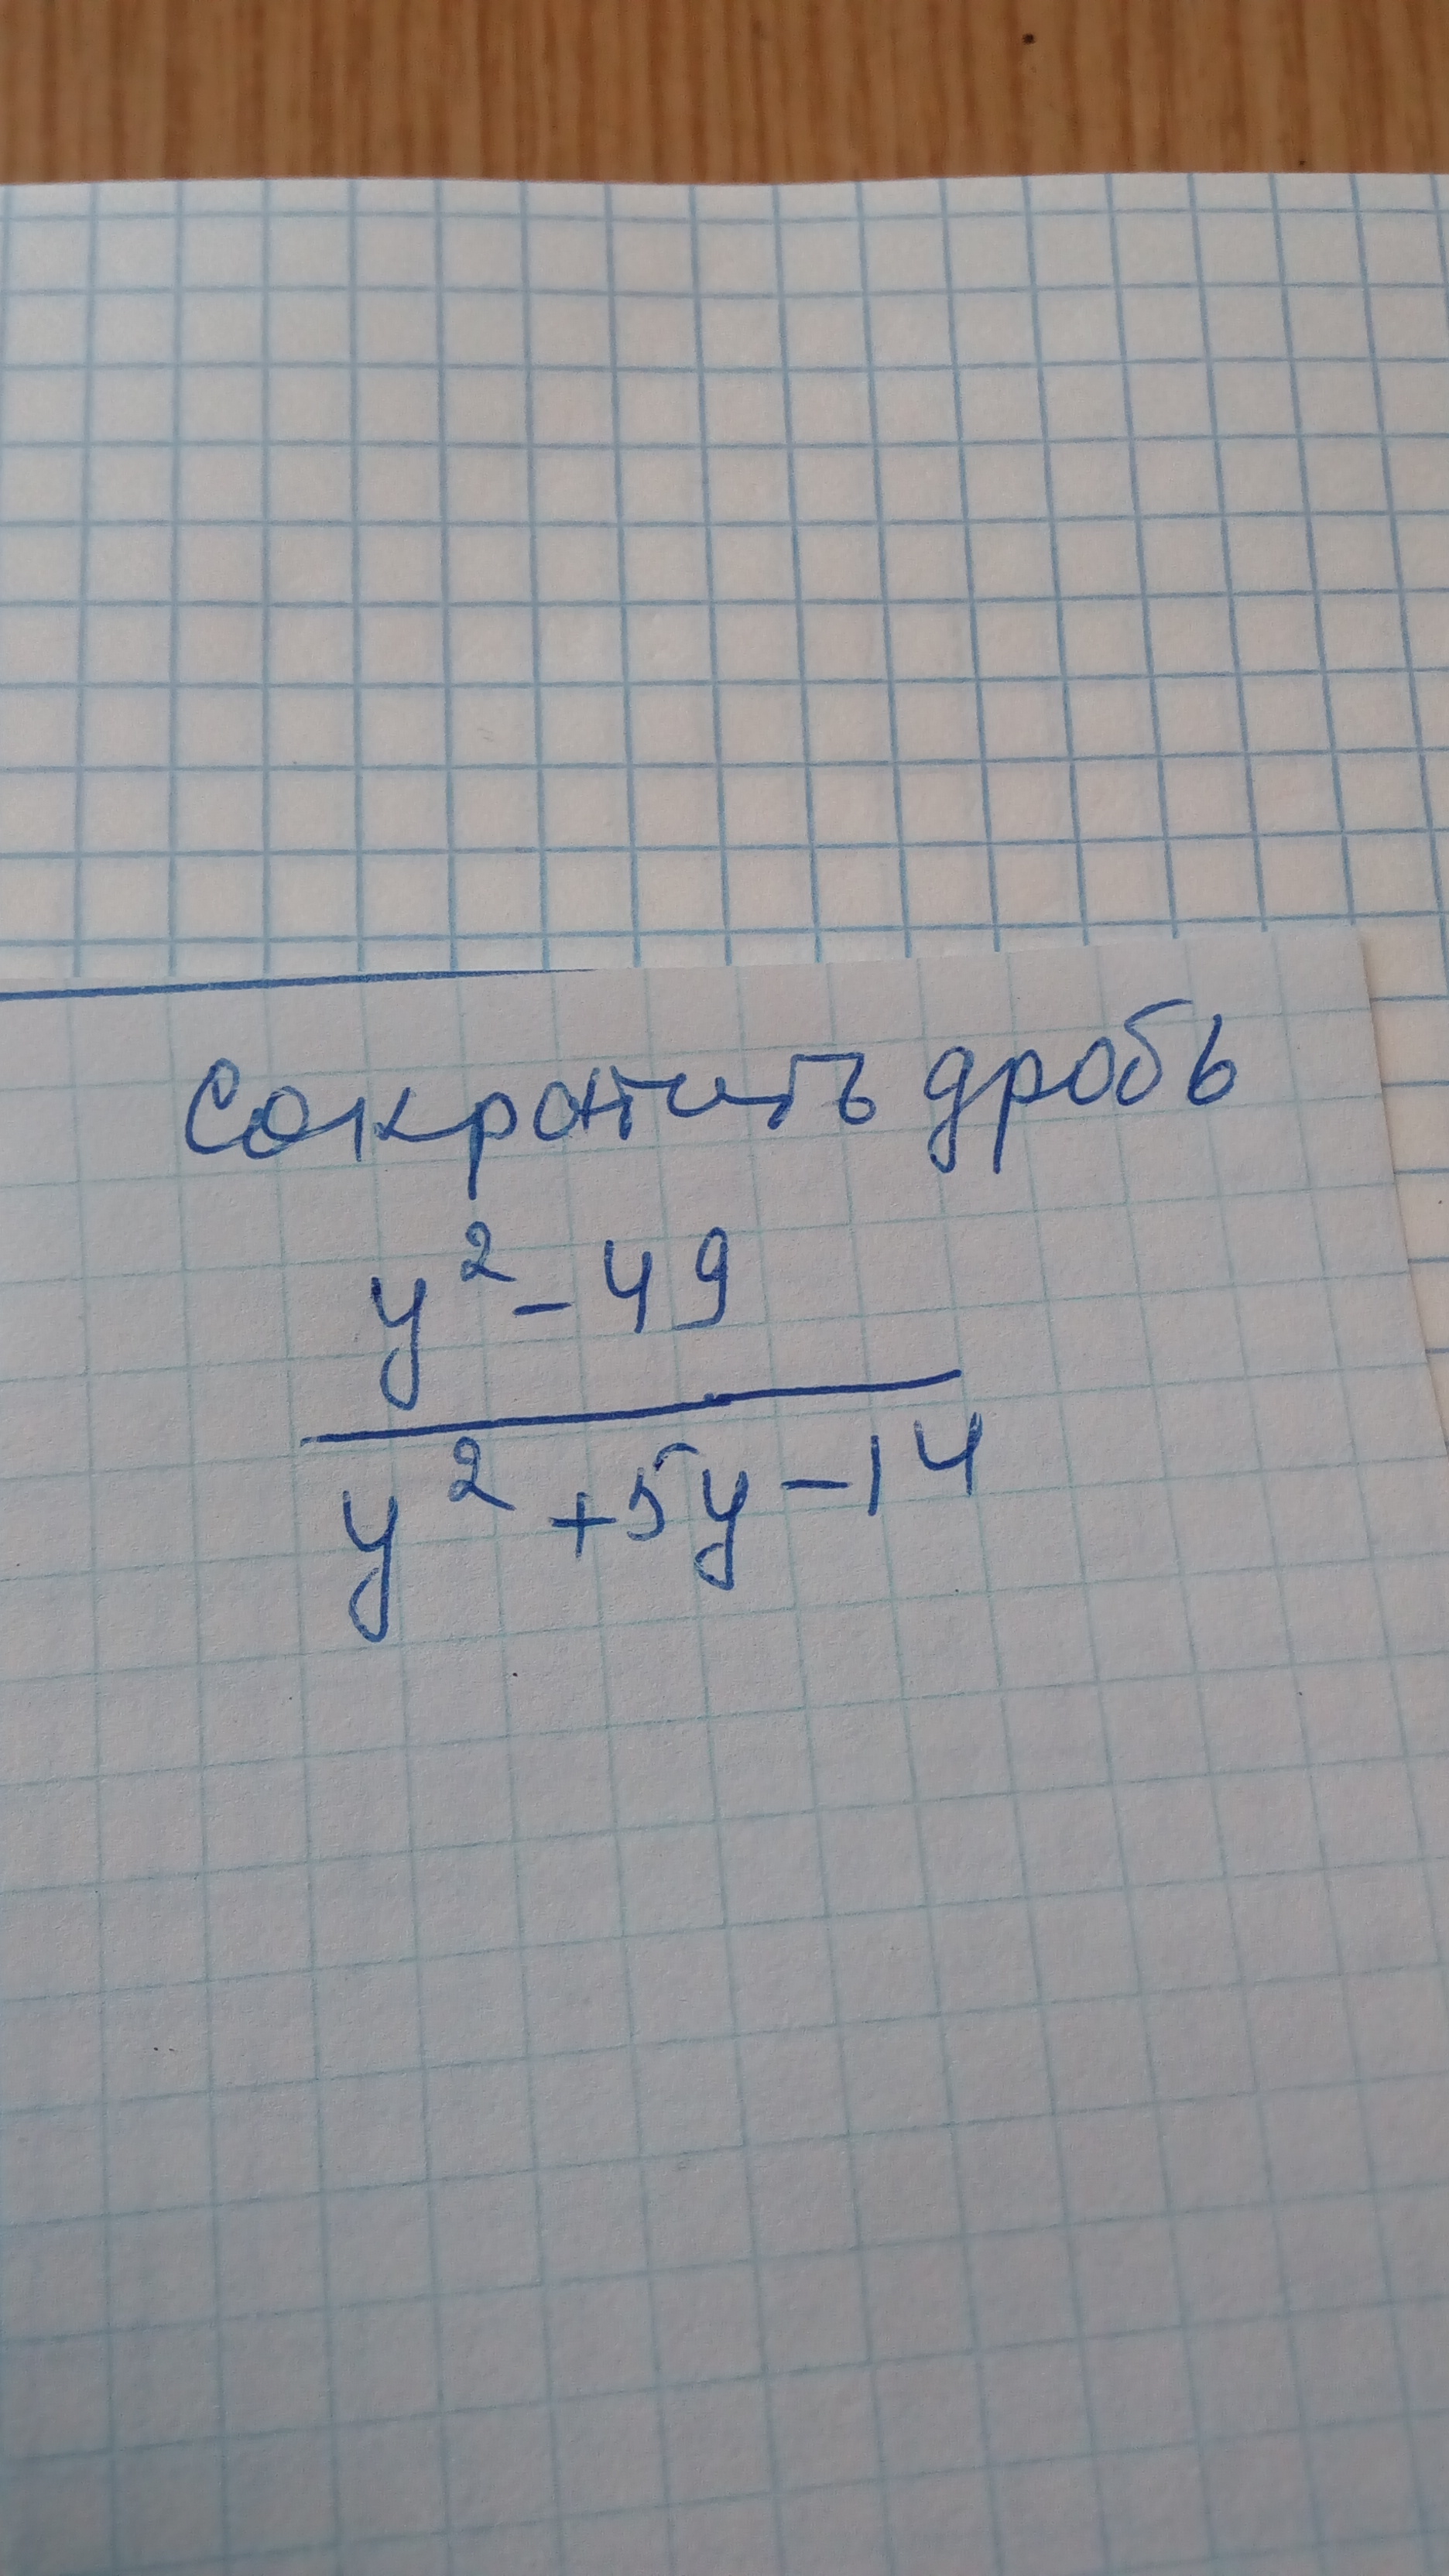 Сократить дробь
y² - 49
y² + 5y - 14